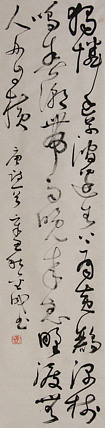 獨憐幽草澗邊生上有黃鸝深樹
鳴春潮帶雨晚來急野渡無
人舟自橫 唐詩一首 書